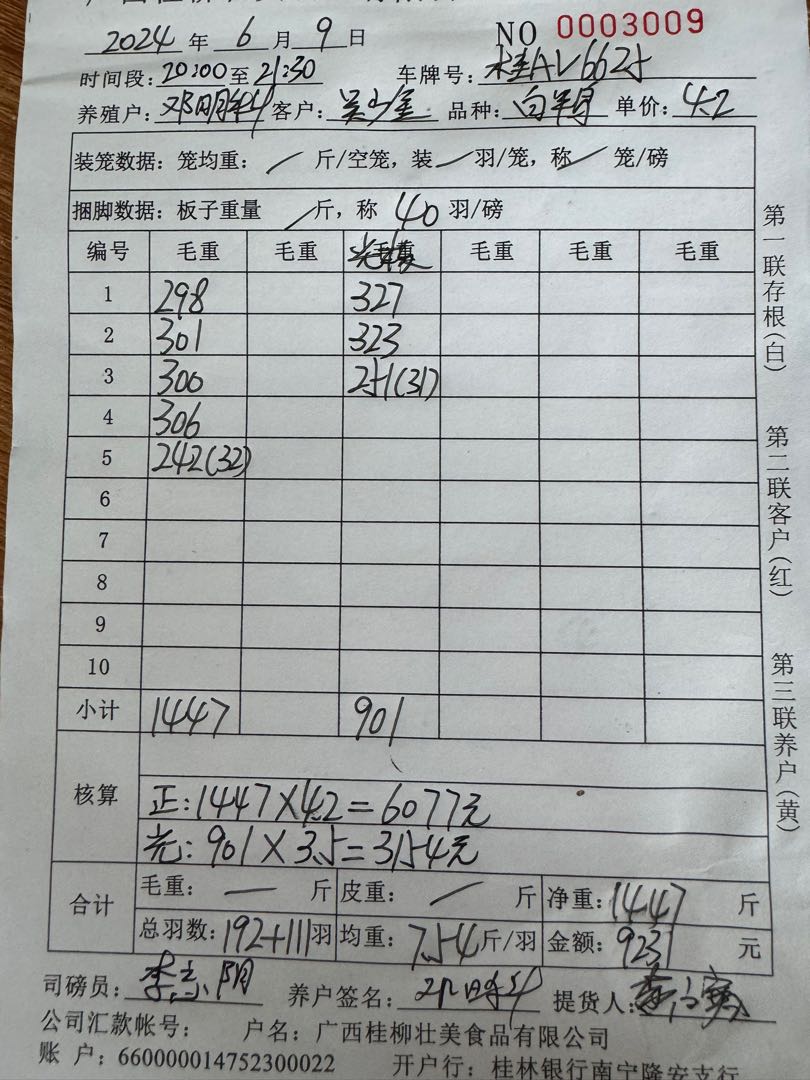 2024 年 6 月 9 日 NO 0003009
时间段: 20:00 至 21:30 车牌号: 桂AV6625
养殖户: 邓明 客户: 品种: 白羊 单价: 4.2
装笼数据: 笼均重: / 斤/空笼, 装 / 羽/笼, 称 / 笼/磅
捆脚数据: 板子重量 / 斤, 称 40 羽/磅
编号 毛重 毛重 光 毛重 毛重 毛重
1 298 327
2 301 323
3 300 251(31)
4 306
5 242(32)
6
7
8
9
10
小计 1447 901
核算
正: 1447×4.2=6077元
光: 901×3.5=3154元
合计
毛重: — 斤 皮重: / 斤 净重: 1447 斤
总羽数: 192+111 羽 均重: 7.54 斤/羽 金额: 9231 元
司磅员: 李 阴 养户签名: 提货人: 李
公司汇款帐号: 户名: 广西桂柳壮美食品有限公司
账 户: 660000014752300022 开户行: 桂林银行南宁隆安支行
第一联存根(白) 第二联客户(红) 第三联养户(黄)